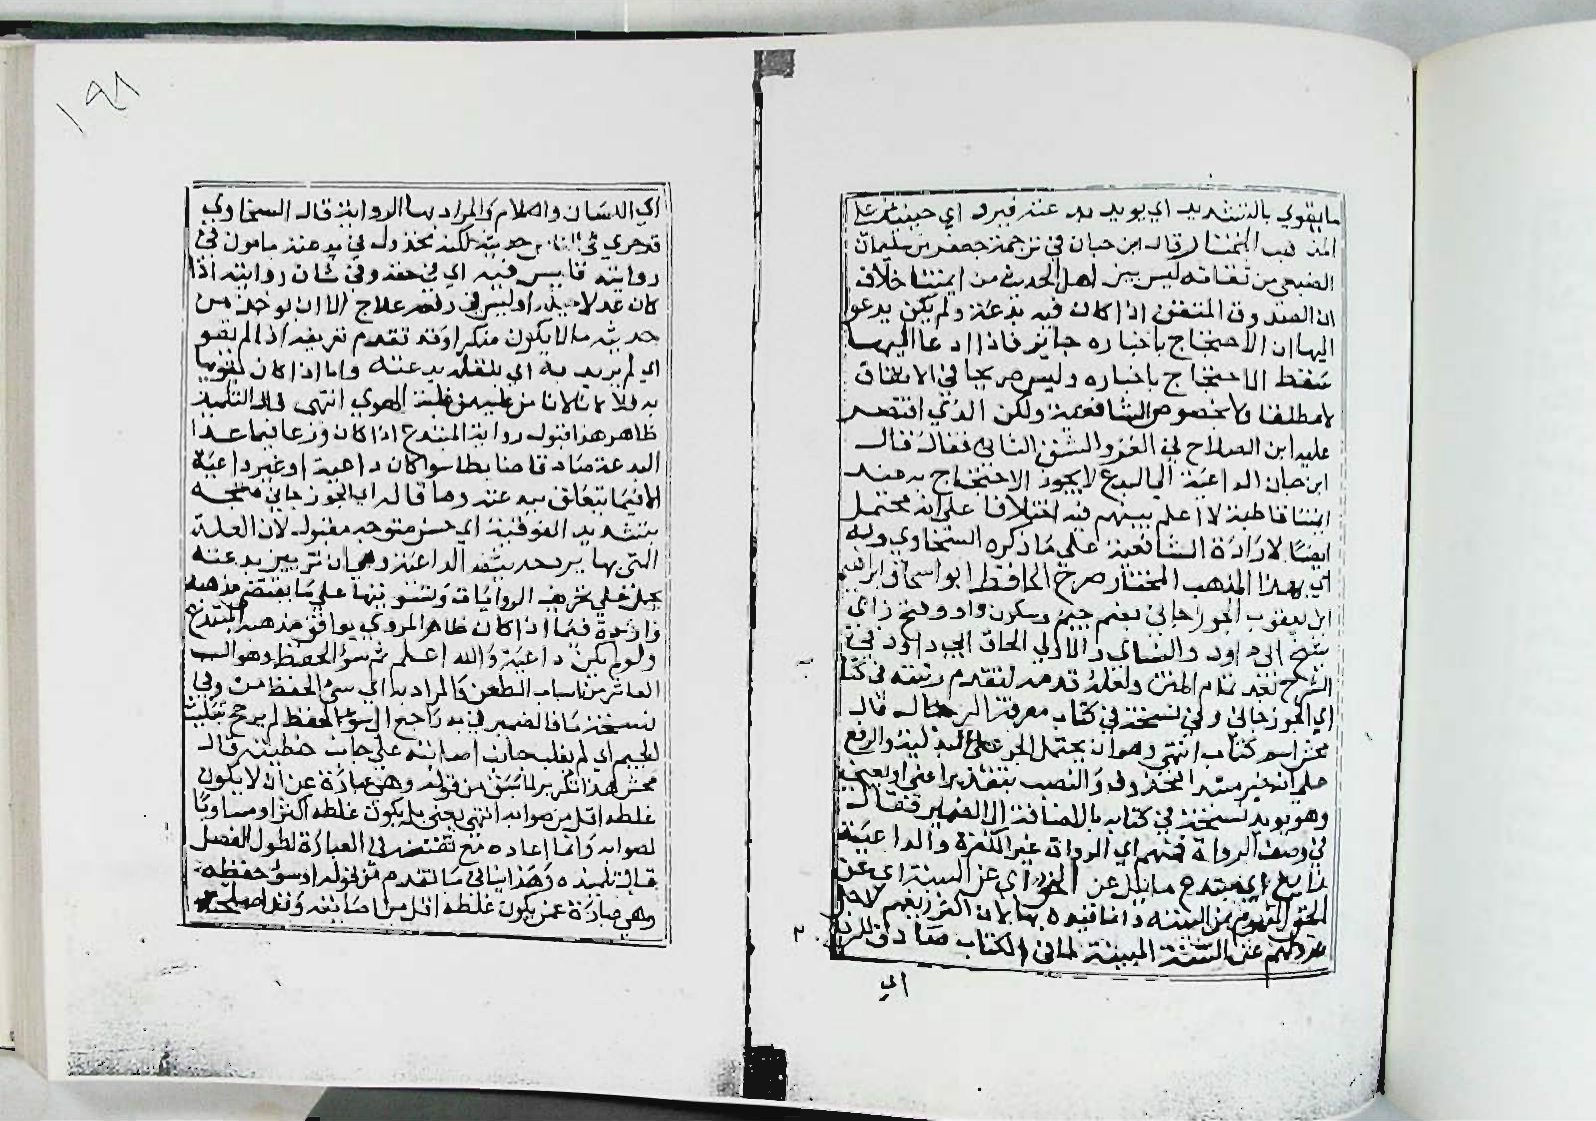 ما يقوي بالتشديد اي يويد بدعته فيرد اي حينئذ على
المذهب المختار قال ابن حبان في ترجمة جعفر بن سليمان
الضبعي من ثقاته ليس بين اهل الحديث من ايمتنا خلاف
ان الصدوق المتقن اذا كان فيه بدعة ولم يكن يدعو
اليها ان الاحتجاج باخباره جايز فاذا دعا اليها
سقط الاحتجاج باخباره وليس صريحا في الاتفاق
لا مطلقا ولا بخصوص الشافعية ولكن الذي اقتصر
عليه ابن الصلاح في العزو الشق الثاني فقال قال
ابن حبان الداعية الي البدع لا يجوز الاحتجاج به عند
ايمتنا قاطبة لا اعلم بينهم فيه اختلافا علي انه محتمل
ايضا لارادة الشافعية علي ما ذكره السخاوي وبه
اي بهذا المذهب المختار صرح الحافظ ابو اسحاق ابراهيم
ابن يعقوب الجوزجاني بضم جيم وسكون واو وفتح زاي
شيخ ابي داود والنساي والاولي الحاق ابي داود في
الشرح بعد تمام المتن ولعله قدمه لتقدم رتبته في كتابه
اي الجوزجاني وفي نسخة في كتاب معرفة الرجال قال
محش اسم كتاب انتهي وهو ان يحتمل الجر علي البدلية والرفع
علي انه خبر مبتدا محذوف والنصب بتقدير اعني او يعني
وهو يويد نسخة في كتابه بالاضافة الي الضمير فقال
في وصف الرواة فمنهم اي الرواة غير الكفرة والداعية
زايغ اي مبتدع مايل عن الحق اي عن السنة اي عن
الحق المفهوم من السنة وانما قيده بها لان اكثر زيغهم لاجل
عدولهم عن السنة المبينة لما في الكتاب صادق اللهجة
اي
١٩٨
اي اللسان والكلام والمراد بها الرواية قال السخاوي
قد جري في الناس حديثه لكنه مخذول في بدعته مامون في
روايته فليس فيه اي في حقه وفي شان روايته اذا
كان عدلا او ليس في دفعه علاج الا ان يوخذ من
حديثه ما لا يكون منكرا وقد تقدم تعريفه اذا لم يقو
اي لم يريد به اي بنقله بدعته واما اذا كان تقويا
به فلا لانا لا نامن عليه من غلبة الهوي انتهى قال التلميذ
ظاهر هذا قبول رواية المبتدع اذا كان ورعا فيما عدا
البدعة صادقا ضابطا سوا كان داعية او غير داعية
الا فيما يتعلق ببدعته وما قاله اي الجوزجاني متجه
بتشديد الفوقية اي حسن متوجه مقبول لان العلة
التي بها يرد حديث الداعية وهي ان تزيين بدعته
يحمله علي تحريف الروايات وتسويتها علي ما يقتضي مذهبه
واردة فيما اذا كان ظاهر المروي يوافق مذهب المبتدع
ولو لم يكن داعية والله اعلم ثم سو الحفظ وهو السبب
العاشر من اسباب الطعن والمراد به اي سي الحفظ من وفي
نسخة ما فالضمير في به راجع الي سو الحفظ لم يرجح بتثليث
الجيم اي لم يغلب جانب اصابته علي جانب خطيته قال
محش هذا تكرير لما سبق من قوله وهي عبارة عن ان لا يكون
غلطه اقل من صوابه انتهي يعني بل يكون غلطه اكثر او مساويا
لصوابه وانما اعاده مع في العبارة لطول الفصل
قال تلميذه وهذا ينافي ما تقدم من قوله او سو حفظه
وهي عبارة عمن يكون غلطه اقل من اصابته وقد اصلحته